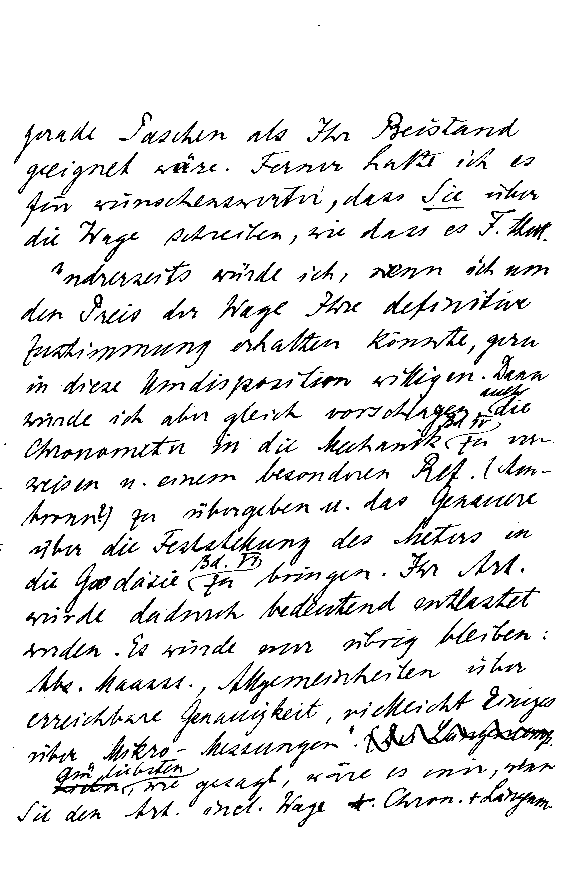 gerade Paschen als Ihr Beistand
geeignet wäre. Ferner halte ich es
für wünschenswerter, dass Sie über
die Wage schreiben, wie dass es F. thut.
Andrerseits würde ich, wenn ich um
den Preis der Wage Ihre definitive
Zustimmung erhalten könnte, gern
in diese Umdisposition willigen. Dann
würde ich aber gleich vorschlagen auch die
Chronometer in die Mechanik Bd IV zu ver-
weisen u. einem besonderen Ref. (Am-
bronn?) zu übergeben u. das Genauere
über die Feststellung des Meters in
die Geodäsie Bd. VI zu bringen. Ihr Art.
würde dadurch bedeutend entlastet
werden. Es würde nur übrig bleiben:
Abs. Maass., Allgemeinheiten über
erreichbare Genauigkeit, vielleicht Einiges
über Mikro-Messungen".
Am liebsten, wie gesagt, wäre es mir, wenn
Sie den Art. incl. Wage + Chron. + Längenm.